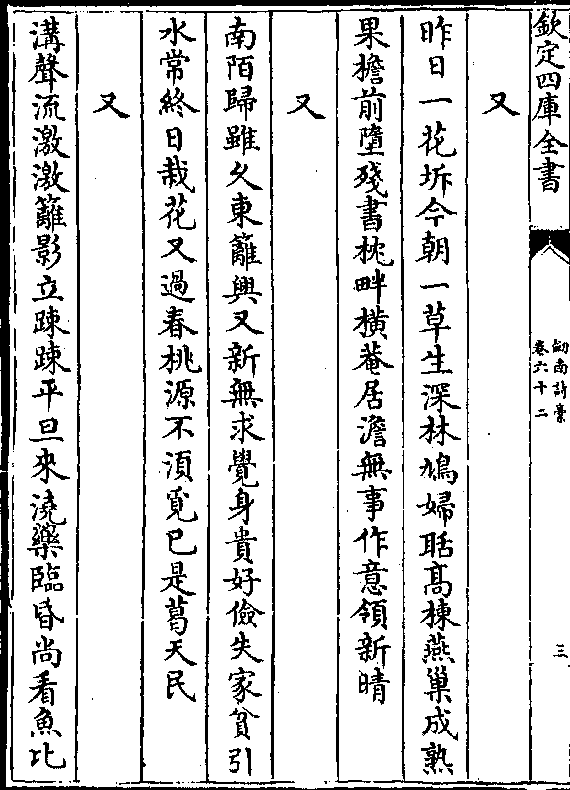 欽定四庫全書
劒南詩稾
卷六十二
三
又
昨日一花坼今朝一草生深林鳩婦聒髙棟燕巢成熟
果檐前墮殘書枕畔橫菴居澹無事作意領新晴
又
南陌歸雖久東籬興又新無求覺身貴好儉失家貧引
水常終日栽花又過春桃源不湏覓已是葛天民
又
溝聲流激激籬影立踈踈平旦來澆藥臨昏尚看魚比